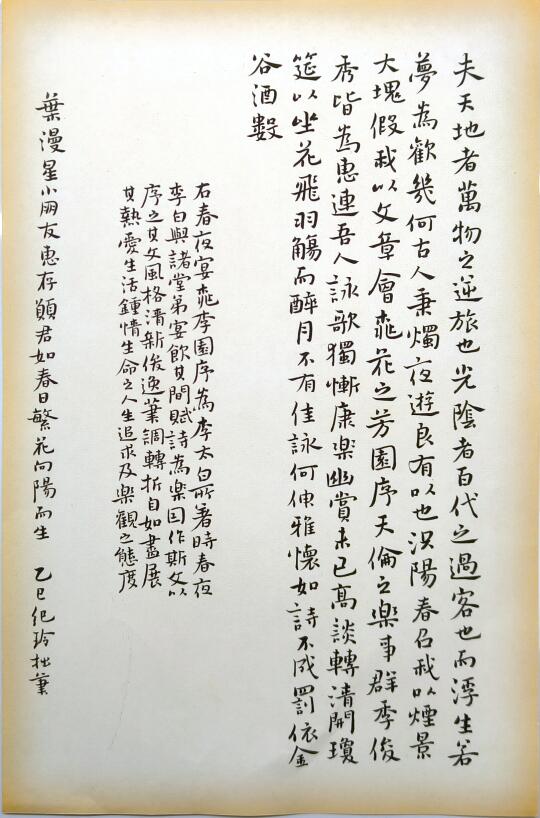 夫天地者萬物之逆旅也光陰者百代之過客也而浮生若
夢為歡幾何古人秉燭夜遊良有以也況陽春召我以煙景
大塊假我以文章會桃花之芳園序天倫之樂事群季俊
秀皆為惠連吾人詠歌獨慚康樂幽賞未已高談轉清開瓊
筵以坐花飛羽觴而醉月不有佳詠何伸雅懷如詩不成罰依金
谷酒數
右春夜宴桃李園序為李太白所著時春夜
李白與諸堂弟宴飲其間賦詩為樂因作斯文以
序之其文風格清新俊逸筆調轉折自如盡展
其熱愛生活鍾情生命之人生追求及樂觀之態度
葉漫星小朋友惠存願君如春日繁花向陽而生 乙巳紀玲拙筆